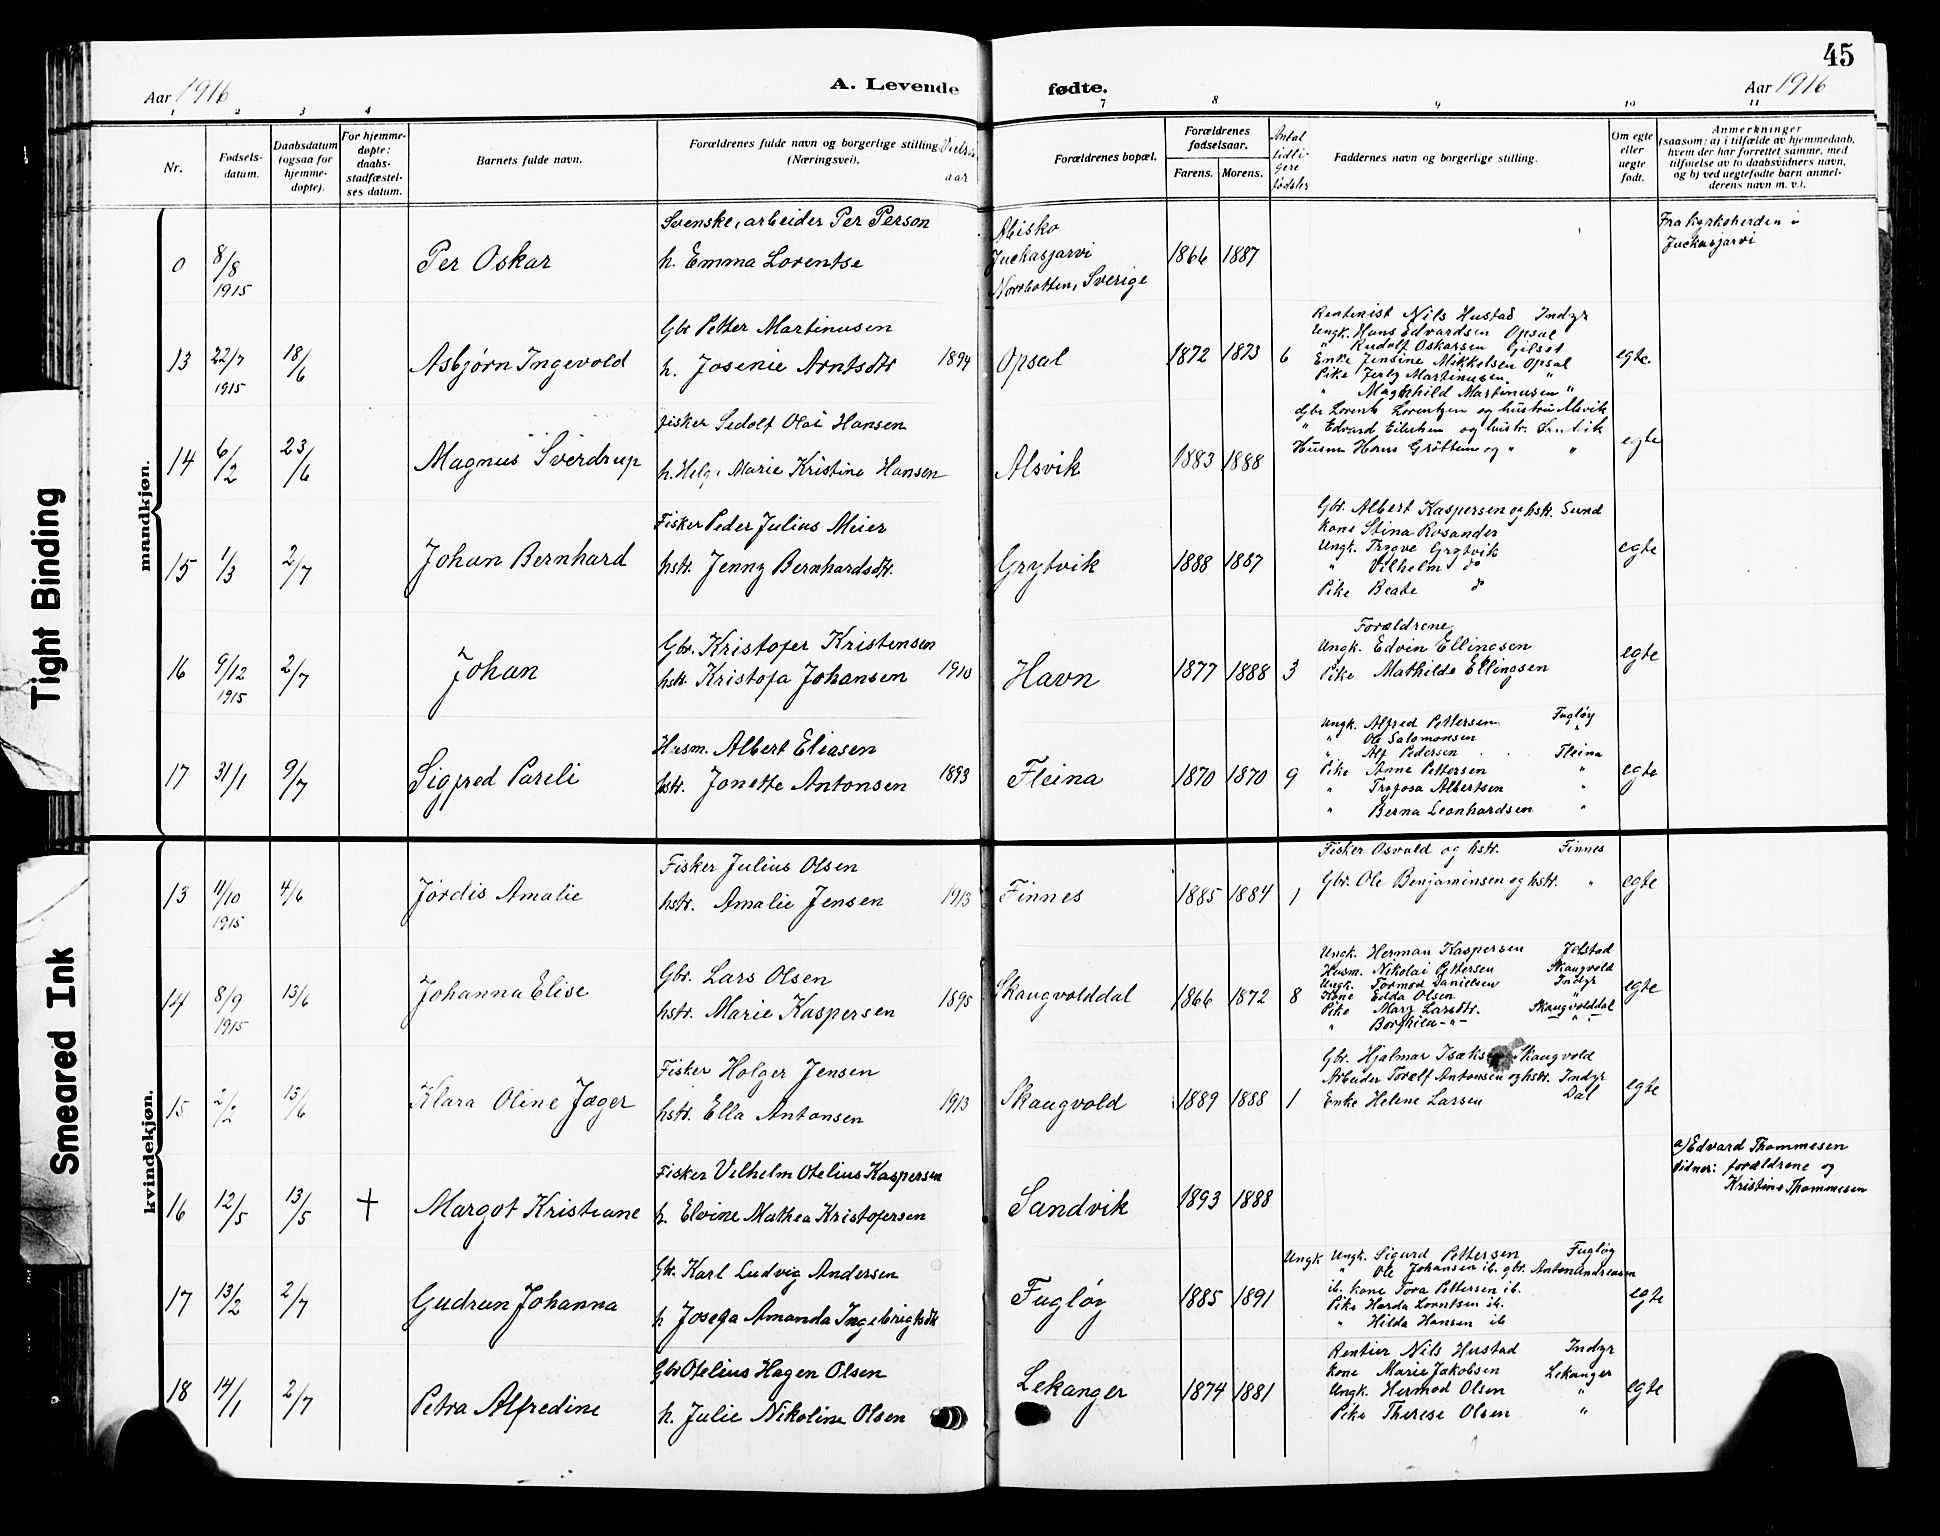 45
Aar 1916
A. Levende fødte.
Aar 1916
1 2 3 4 7 8 9 10 11
Nr.
Fødsels-
datum.
Daabsdatum
(ogsaa for
hjemme-
døpte).
For hjemme-
døpte:
daabs-
stadfæstel-
ses datum.
Barnets fulde navn.
Forældrenes fulde navn og borgerlige stilling
(Næringsvei).
Vielses
aar
Forældrenes bopæl.
Forældrenes
fødselsaar.
Farens. Morens.
Antal
tidli-
gere
fødsler
Faddernes navn og borgerlige stilling.
Om egte
eller
uegte
født.
Anmerkninger
(saasom: a) i tilfælde av hjemmedaab,
hvem der har forrettet samme, med
tilføielse av to daabsvidners navn,
og b) ved uegtefødte barn anmel-
derens navn m. v.).
mandkjøn.
0
8/8
1915
Per Oskar
Svenske, arbeider Per Person
h. Emma Lorentse
Abisko
Juckasjarvi
Norrbotten, Sverige
1866 1887
Fra kyrkoherden i
Juckasjarvi
13
22/7
1915
18/6
Asbjørn Ingevold
Gbr Petter Martinusen
h. Josenie Arntsdtr
1894
Opsal
1872 1873 6
Rentenist Nils Hustad Indyr
Ungk. Hans Edvardsen Opsal
" Rudolf Oskarsen Gilset
Enke Jensine Mikkelsen Opsal
Pike Jerly Martinusen "
" Magnhild Martinusen "
egte
14
6/2
23/6
Magnus Sverdrup
fisker Sedolf Olai Hansen
h. Helga Marie Kristine Hansen
Alsvik
1883 1888
Gbr Lorents Lorentzen og hustru Alsvik
" Edvard Eilertsen og hustr. Sandvik
Husm Hans Grøttum og " "
egte
15
1/3
2/7
Johan Bernhard
Fisker Peder Julius Meier
hstr. Jenny Bernhardsdtr.
Grytvik
1888 1887
Gbr. Albert Kaspersen og hstr. Sund
Kone Stina Rosander
Ungk. Trygve Grytvik
" Vilhelm do
Pike Beate do
egte
16
9/12
1915
2/7
Johan
Gbr. Kristofer Kristensen
hstr Kristofa Johansen
1910
Havn
1877 1888 3
Forældrene
Ungk. Edvin Ellingsen
Pike Mathilde Ellingsen
egte
17
31/1
9/7
Sigfred Pareli
Husm. Albert Eliasen
hstr. Jonette Antonsen
1893
Fleina
1870 1870 9
Ungk. Alfred Pettersen Fugløy
" Ole Salomonsen "
" Alf Pedersen Fleina
Pike Anne Pettersen "
" Trofosa Albertsen "
" Berna Leonhardsen "
egte
kvindekjøn.
13
11/10
1915
4/6
Jørdis Amalie
Fisker Julius Olsen
hstr. Amalie Jensen
1913
Finnes
1885 1884 1
Fisker Osvald og hstr. Finnes
Gbr. Ole Benjaminsen og hstr. "
egte
14
8/9
1915
13/6
Johanna Elise
Gbr. Lars Olsen
hstr. Marie Kaspersen
1895
Skaugvolddal
1866 1872 8
Ungk. Herman Kaspersen Jelstad
Husm. Nikolai Pettersen Skaugvold
Ungk. Tormod Danielsen Indyr
Kone Edda Olsen "
Pike Mary Larsdtr. Skaugvolddal
" Borghild -"- "
egte
15
2/2
13/6
Klara Oline Jæger
Fisker Holger Jensen
hstr. Ella Antonsen
1913
Skaugvold
1889 1888 1
Gbr. Hjalmar Isaksen Skaugvold
Arbeider Toralf Antonsen og hstr. Indyr
Enke Helene Larsen Dal
egte
16
12/5
13/5
+
Margot Kristiane
Fisker Vilhelm Otelius Kaspersen
h. Elvine Mathea Kristofersen
Sandvik
1893 1888
a) Edvard Thommesen
Vidner: forældrene og
Kristine Thommesen
17
13/2
2/7
Gudrun Johanna
Gbr. Karl Ludvig Andersen
h Josefa Amanda Ingebrigtsdtr
Fugløy
1885 1891
Ungk Ungk. Sigurd Pettersen Fugløy
" Ole Johansen ib. gbr. Anton Andreasen
ib. Kone Tora Pettersen ib.
Pike Harda Lorntsen ib.
" Hilda Hansen ib
egte
18
14/1
2/7
Petra Alfredine
Gbr Otelius Hagen Olsen
h. Julie Nikoline Olsen
Lekanger
1874 1881
Rentier Nils Hustad Indyr
Kone Marie Jakobsen Lekanger
Ungk. Hermod Olsen "
Pike Therese Olsen "
egte
Tight Binding
Smeared Ink